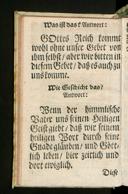 Was ist das? Antwort:
GOttes Reich kommt
wohl ohne unser Gebet von
ihm selbst/ aber wir bitten in
diesem Gebet/ daß es auch zu
uns komme.
Wie Geschicht das?
Antwort:
Wenn der himmlische
Vater uns seinen Heiligen
Geist giebt/ daß wir seinem
heiligen Wort durch seine
Gnade gläuben/ und Gött-
lich leben/ hier zeitlich und
dort ewiglich.
Diese